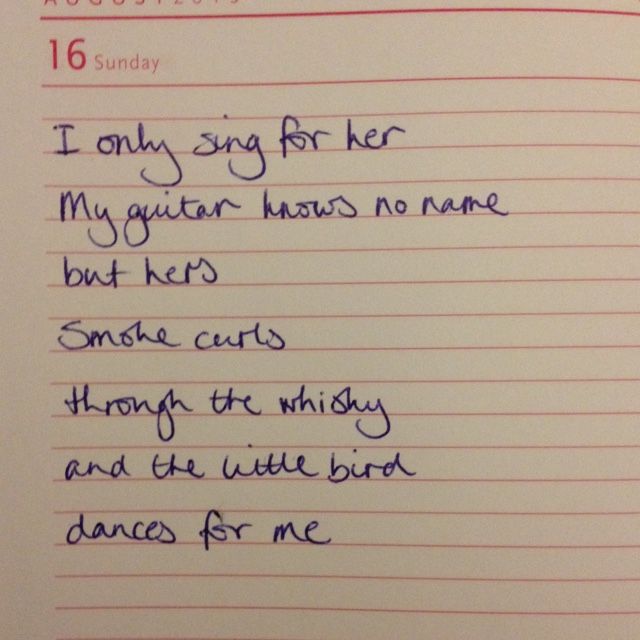 16 Sunday
I only sing for her
My guitar knows no name
but hers
Smoke curls
through the whisky
and the little bird
dances for me